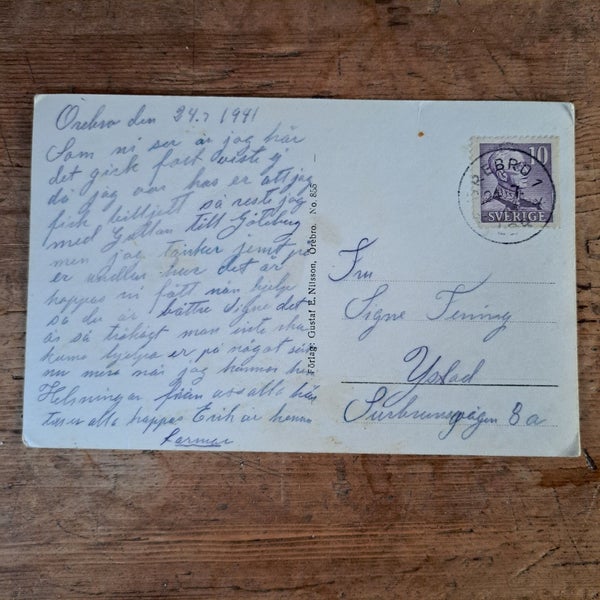 Örebro den 24.7 1941
Som ni ser är jag här
det gick fort viste ej
då jag var hos er att jag
fick billjett så reste jag
med Göttan till Göteborg
men jag tänker jemt på
er undlar hur det är
hoppas ni fått nån hjelp
så du är bättre Signe det
är så tråkigt man inte ska
kuna hjelpa er på något sätt
nu men när jag kommer hem
Helsningar från oss alla här
alla hoppas Erik är hemma
Förlag: Gustaf E. Nilsson, Örebro. No. 855
10
SVERIGE
ÖREBRO 1
24 7
Fru
Signe
Ystad
Surbrunnsvägen 8 a